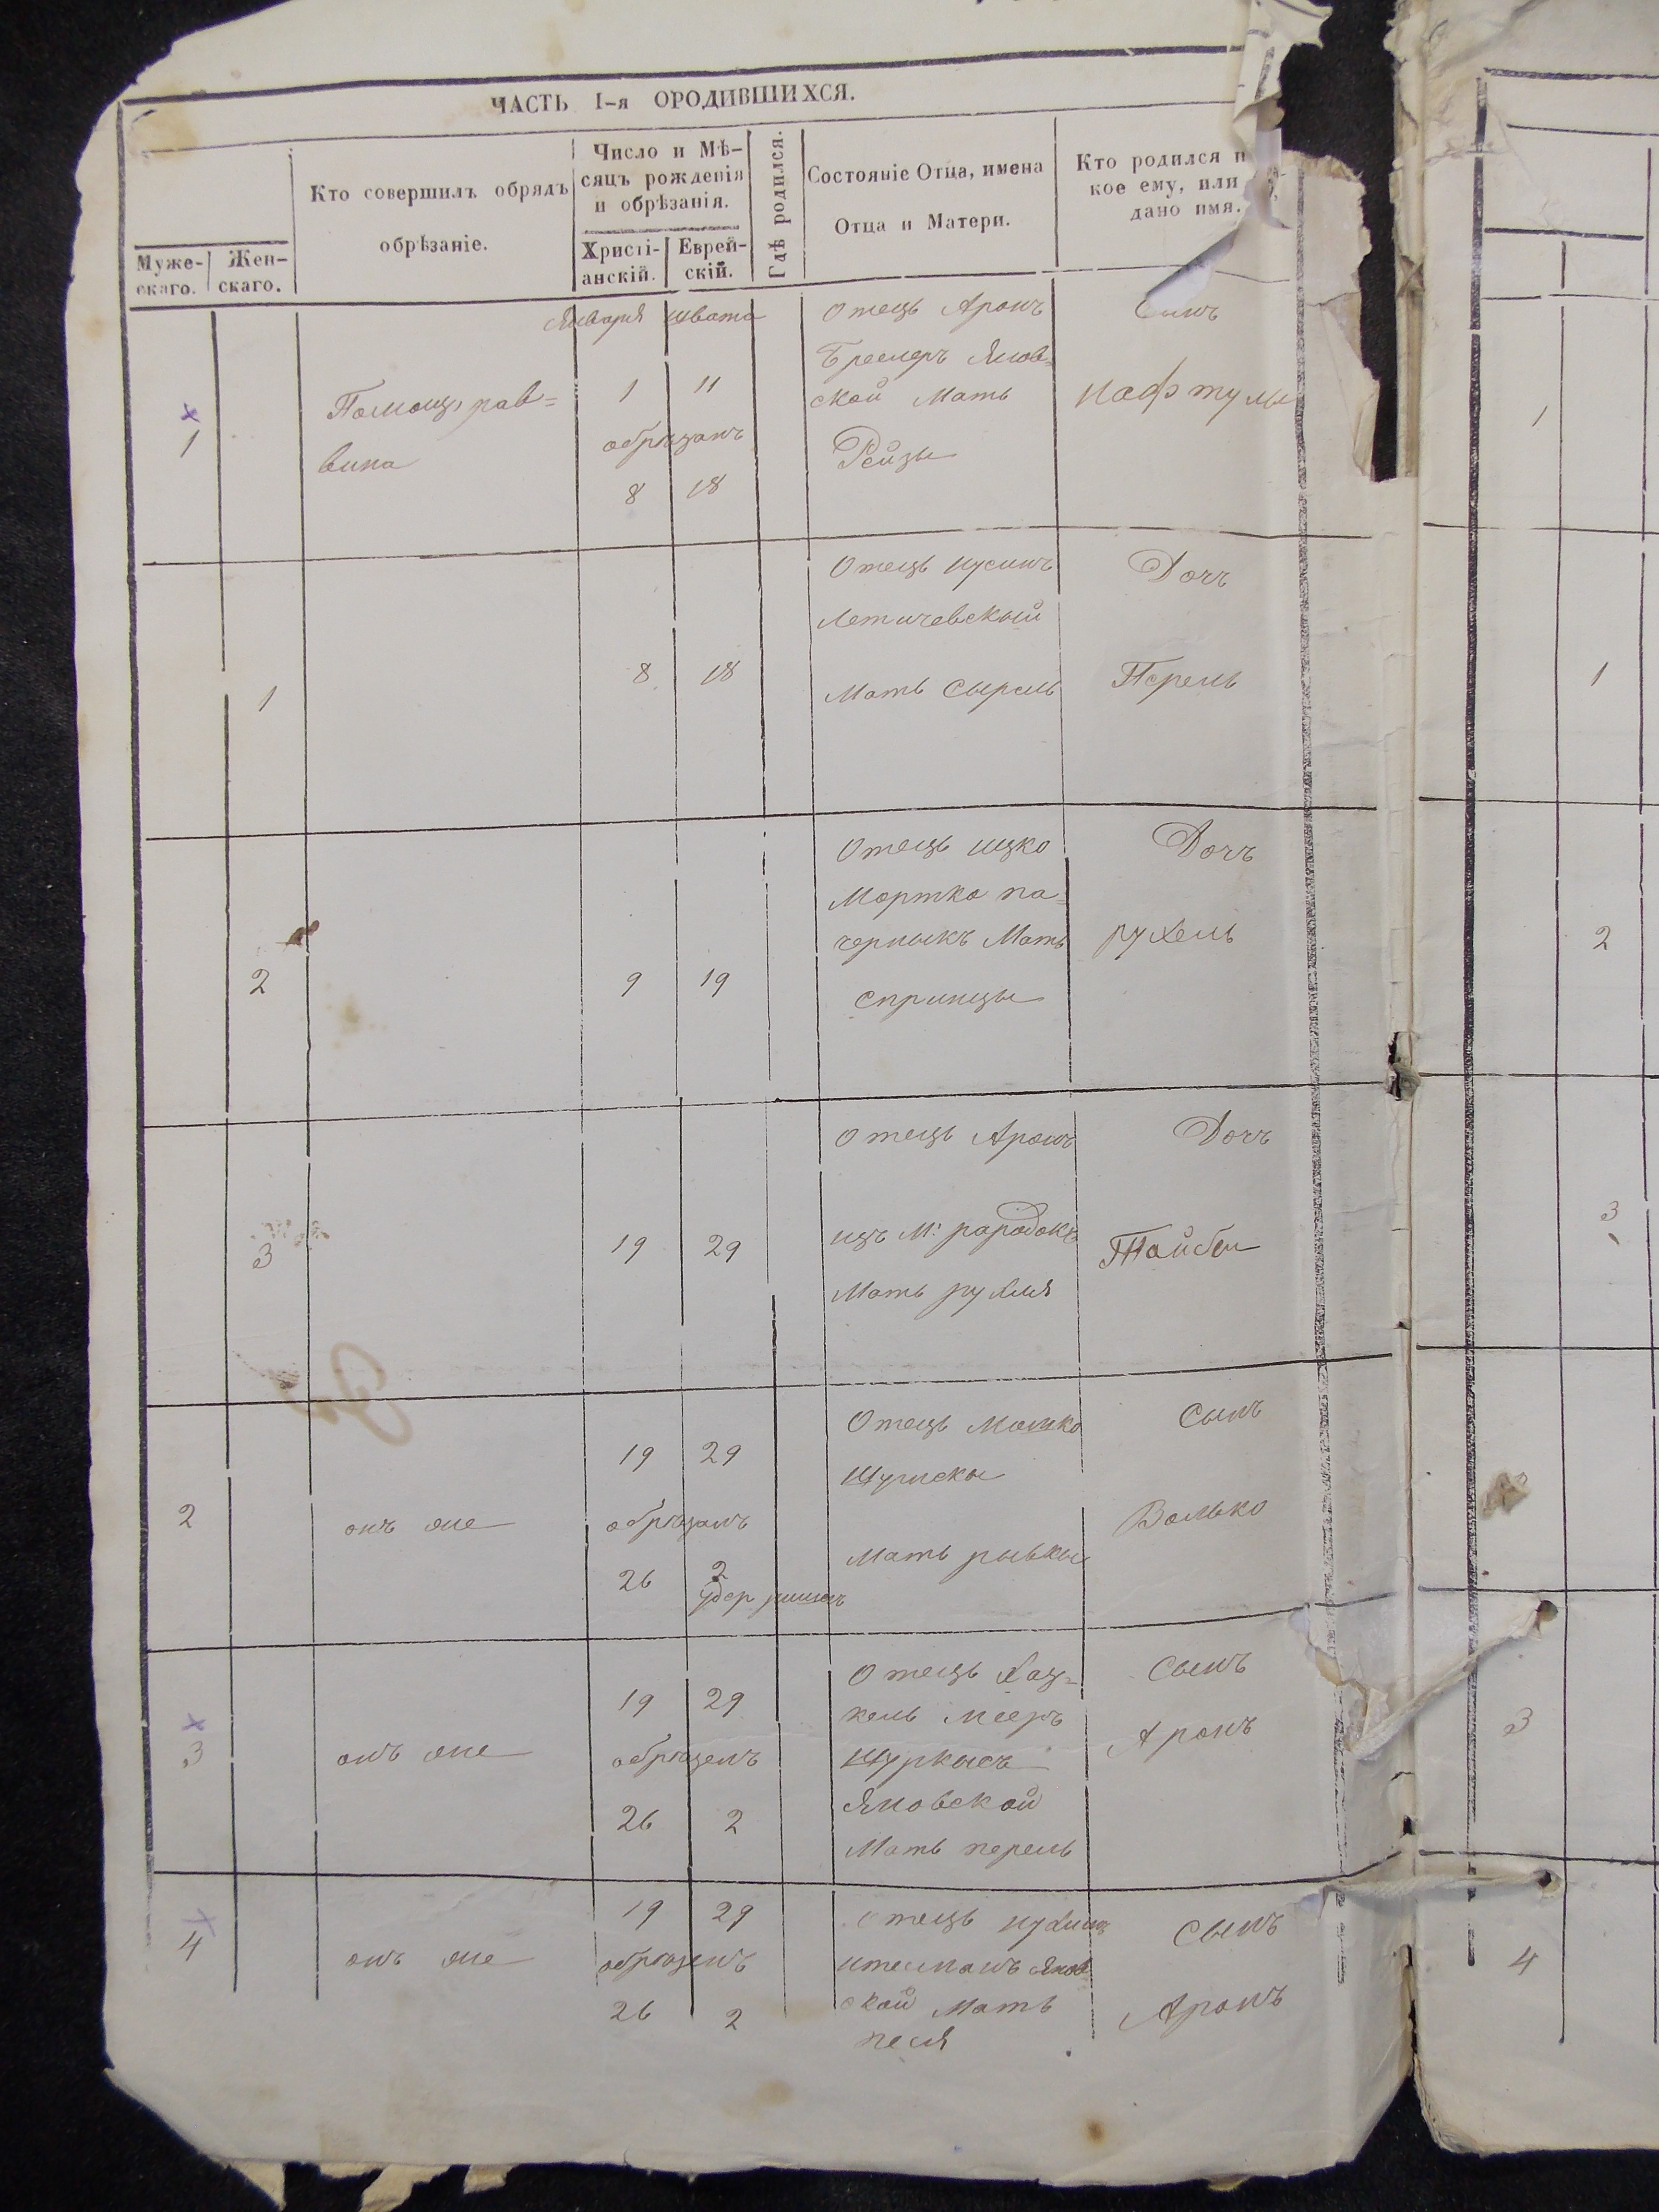 ЧАСТЬ I-я ОРОДИВШИХСЯ.
Муже-
скаго.
Жен-
скаго.
Кто совершилъ обрядъ
обрѣзаніе.
Число и Мѣ-
сяцъ рожденія
и обрѣзанія.
Христі-
анскій.
Еврей-
скій.
Гдѣ родился.
Состояніе Отца, имена
Отца и Матери.
Кто родился и
кое ему, или
дано имя.
Января швата
1
Помощ. рав=
вина
1 11
обрѣзанъ
8 18
Отецъ Аронъ
Янов=
ской Мать
Рейзы
Сынъ
Нафтулы
1
1
8 18
Отецъ Нусинъ
Летичевскый
Мать Сырель
Дочъ
Перель
1
2
9 19
Отецъ Ицко
Мортко па=
черныкъ Мать
Спринцы
Дочъ
рухель
2
3
19 29
Отецъ Аронъ
изъ М:
Мать рухля
Дочъ
Тайбы
3
2
онъ же
19 29
обрѣзанъ
26 2
Отецъ Мошко
Мать рывкы
Сынъ
Волько
3
онъ же
19 29
обрѣзанъ
26 2
Отецъ Хац=
кель Мееръ
Яновской
Мать перель
Сынъ
Аронъ
3
4
онъ же
19 29
обрѣзанъ
26 2
Отецъ Нухимъ
Янов
ской Мать
песя
Сынъ
Аронъ
4